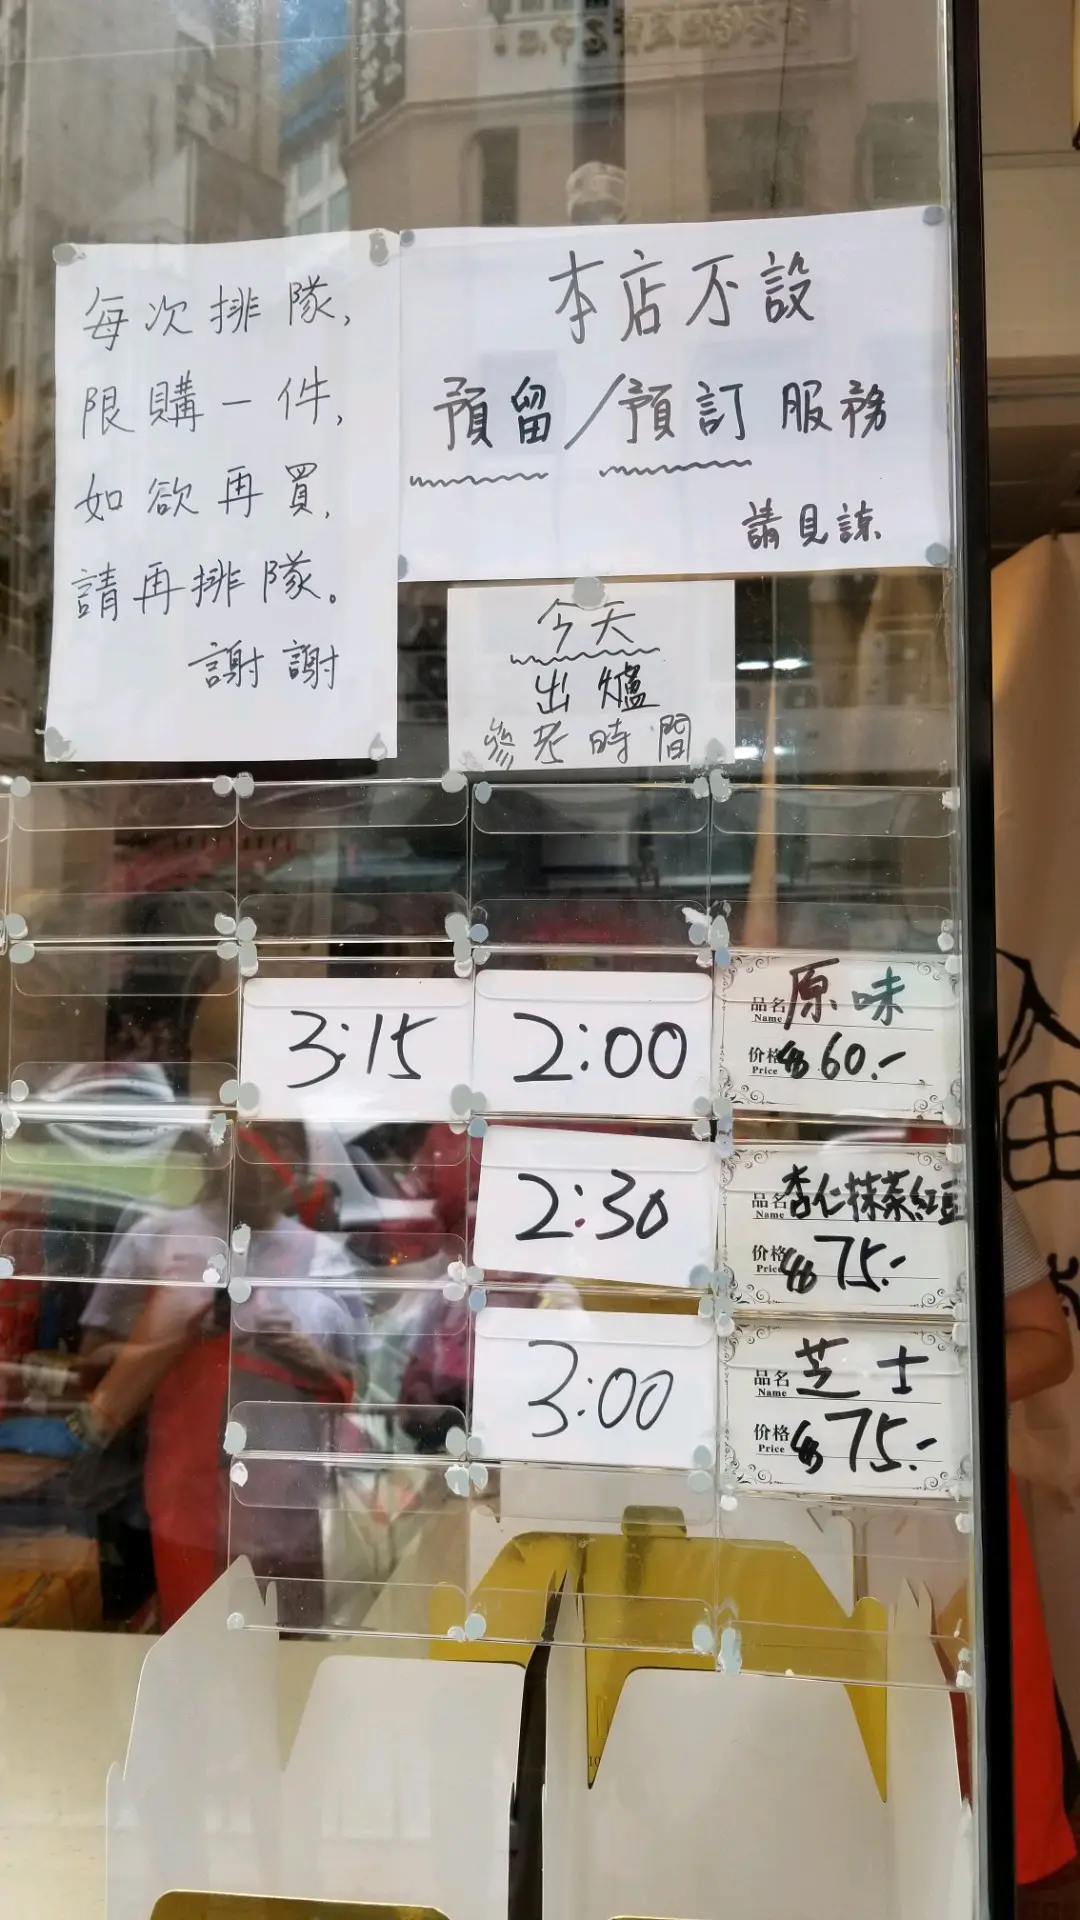 每次排隊,
限購一件,
如欲再買,
請再排隊。
謝謝
本店不設
預留/預訂服務
請見諒
今天
出爐
參考時間
3:15
2:00
品名 Name 原味
价格 Price $60.-
2:30
品名 Name 杏仁抹茶紅豆
价格 Price $75.-
3:00
品名 Name 芝士
价格 Price $75.-